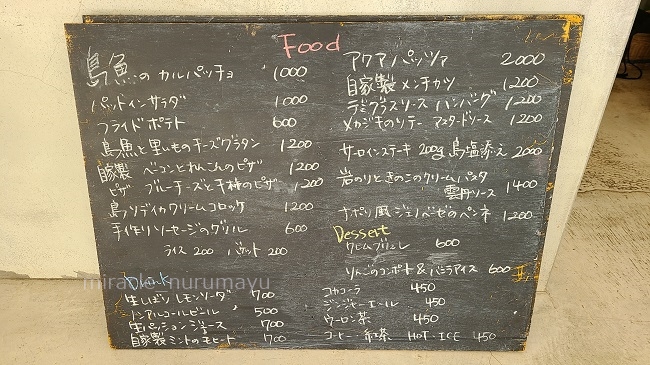 Food
島魚のカルパッチョ 1000
バットインサラダ 1000
フライドポテト 600
島魚と里いものチーズグラタン 1200
自家製 ベーコンとれんこんのピザ 1200
ピザ ブルーチーズと干柿のピザ 1200
島ソデイカクリームコロッケ 1200
手作りソーセージのグリル 600
ライス 200 バケット 200
Drink
生しぼりレモンソーダ 700
ノンアルコールビール 500
生パッションジュース 700
自家製ミントのモヒート 700
アクアパッツァ 2000
自家製メンチカツ 1200
デミグラスソース ハンバーグ 1200
メカジキのソテー マスタードソース 1200
サーロインステーキ 200g 島塩添え 2000
岩のりときのこのクリームパスタ
雲丹ソース 1400
ナポリ風ジェノベーゼのペンネ 1200
Dessert
クレームブリュレ 600
りんごのコンポート&バニラアイス 600
コカコーラ 450
ジンジャーエール 450
ウーロン茶 450
コーヒー・紅茶 HOT・ICE 450
mirable nurumayu